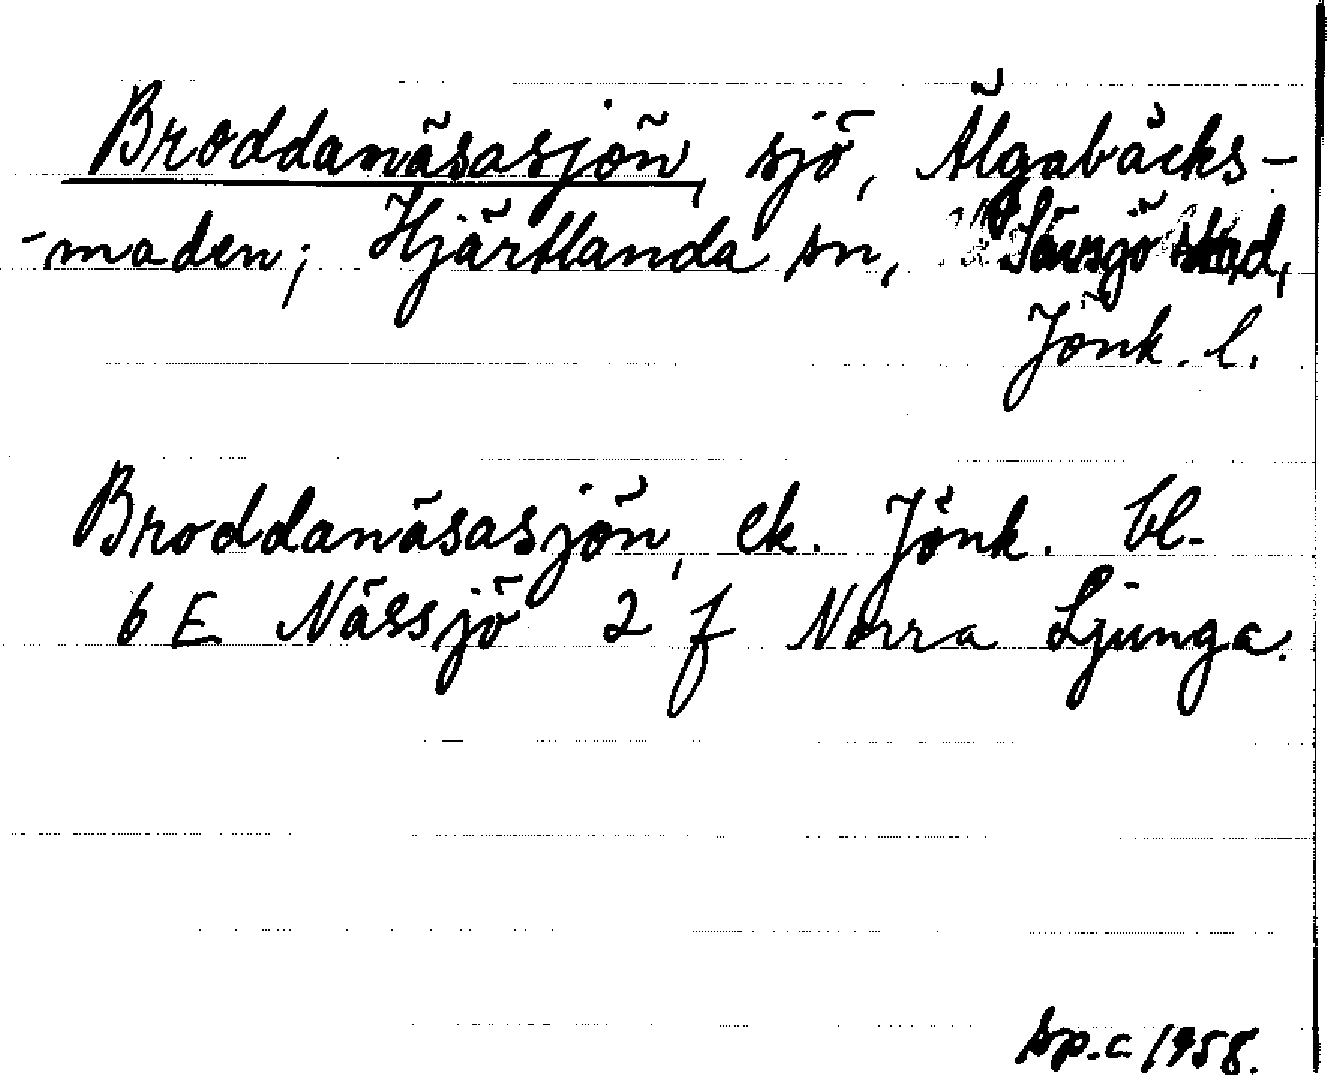 Broddanäsasjön, sjö, Älgabäcks-
-maden; Hjärtlanda sn, Sävsjö stad,
Jönk. l.
Broddanäsasjön, ek. Jönk. bl.
6 E Nässjö 2 f Norra Ljunga.
sp.c 1958.